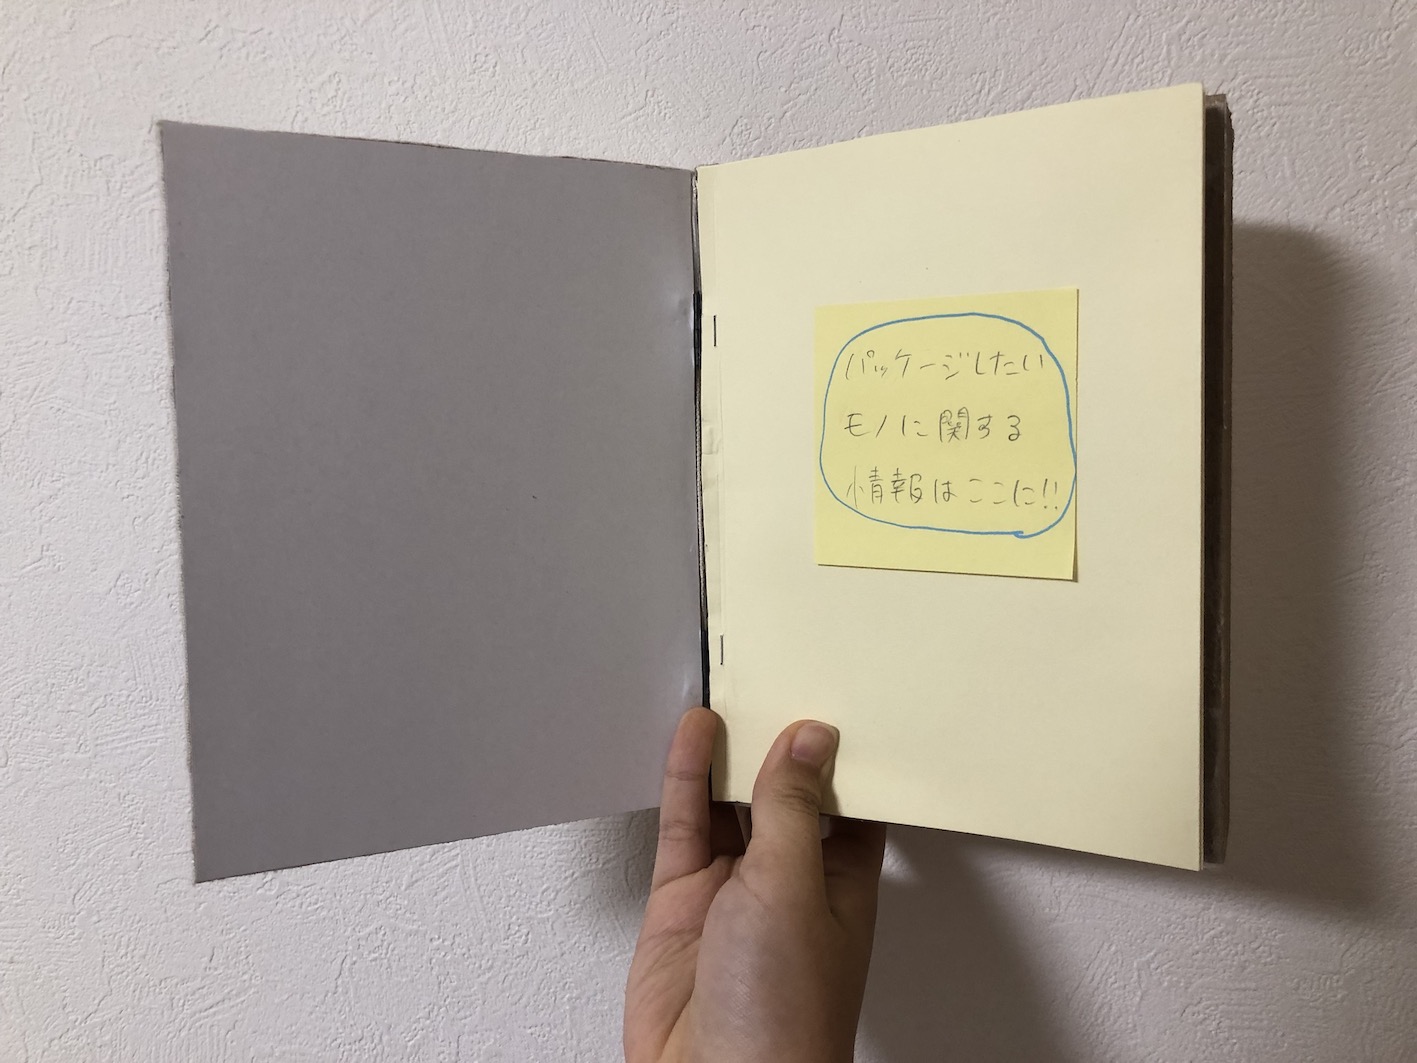 パッケージしたい
モノに関する
情報はここに!!